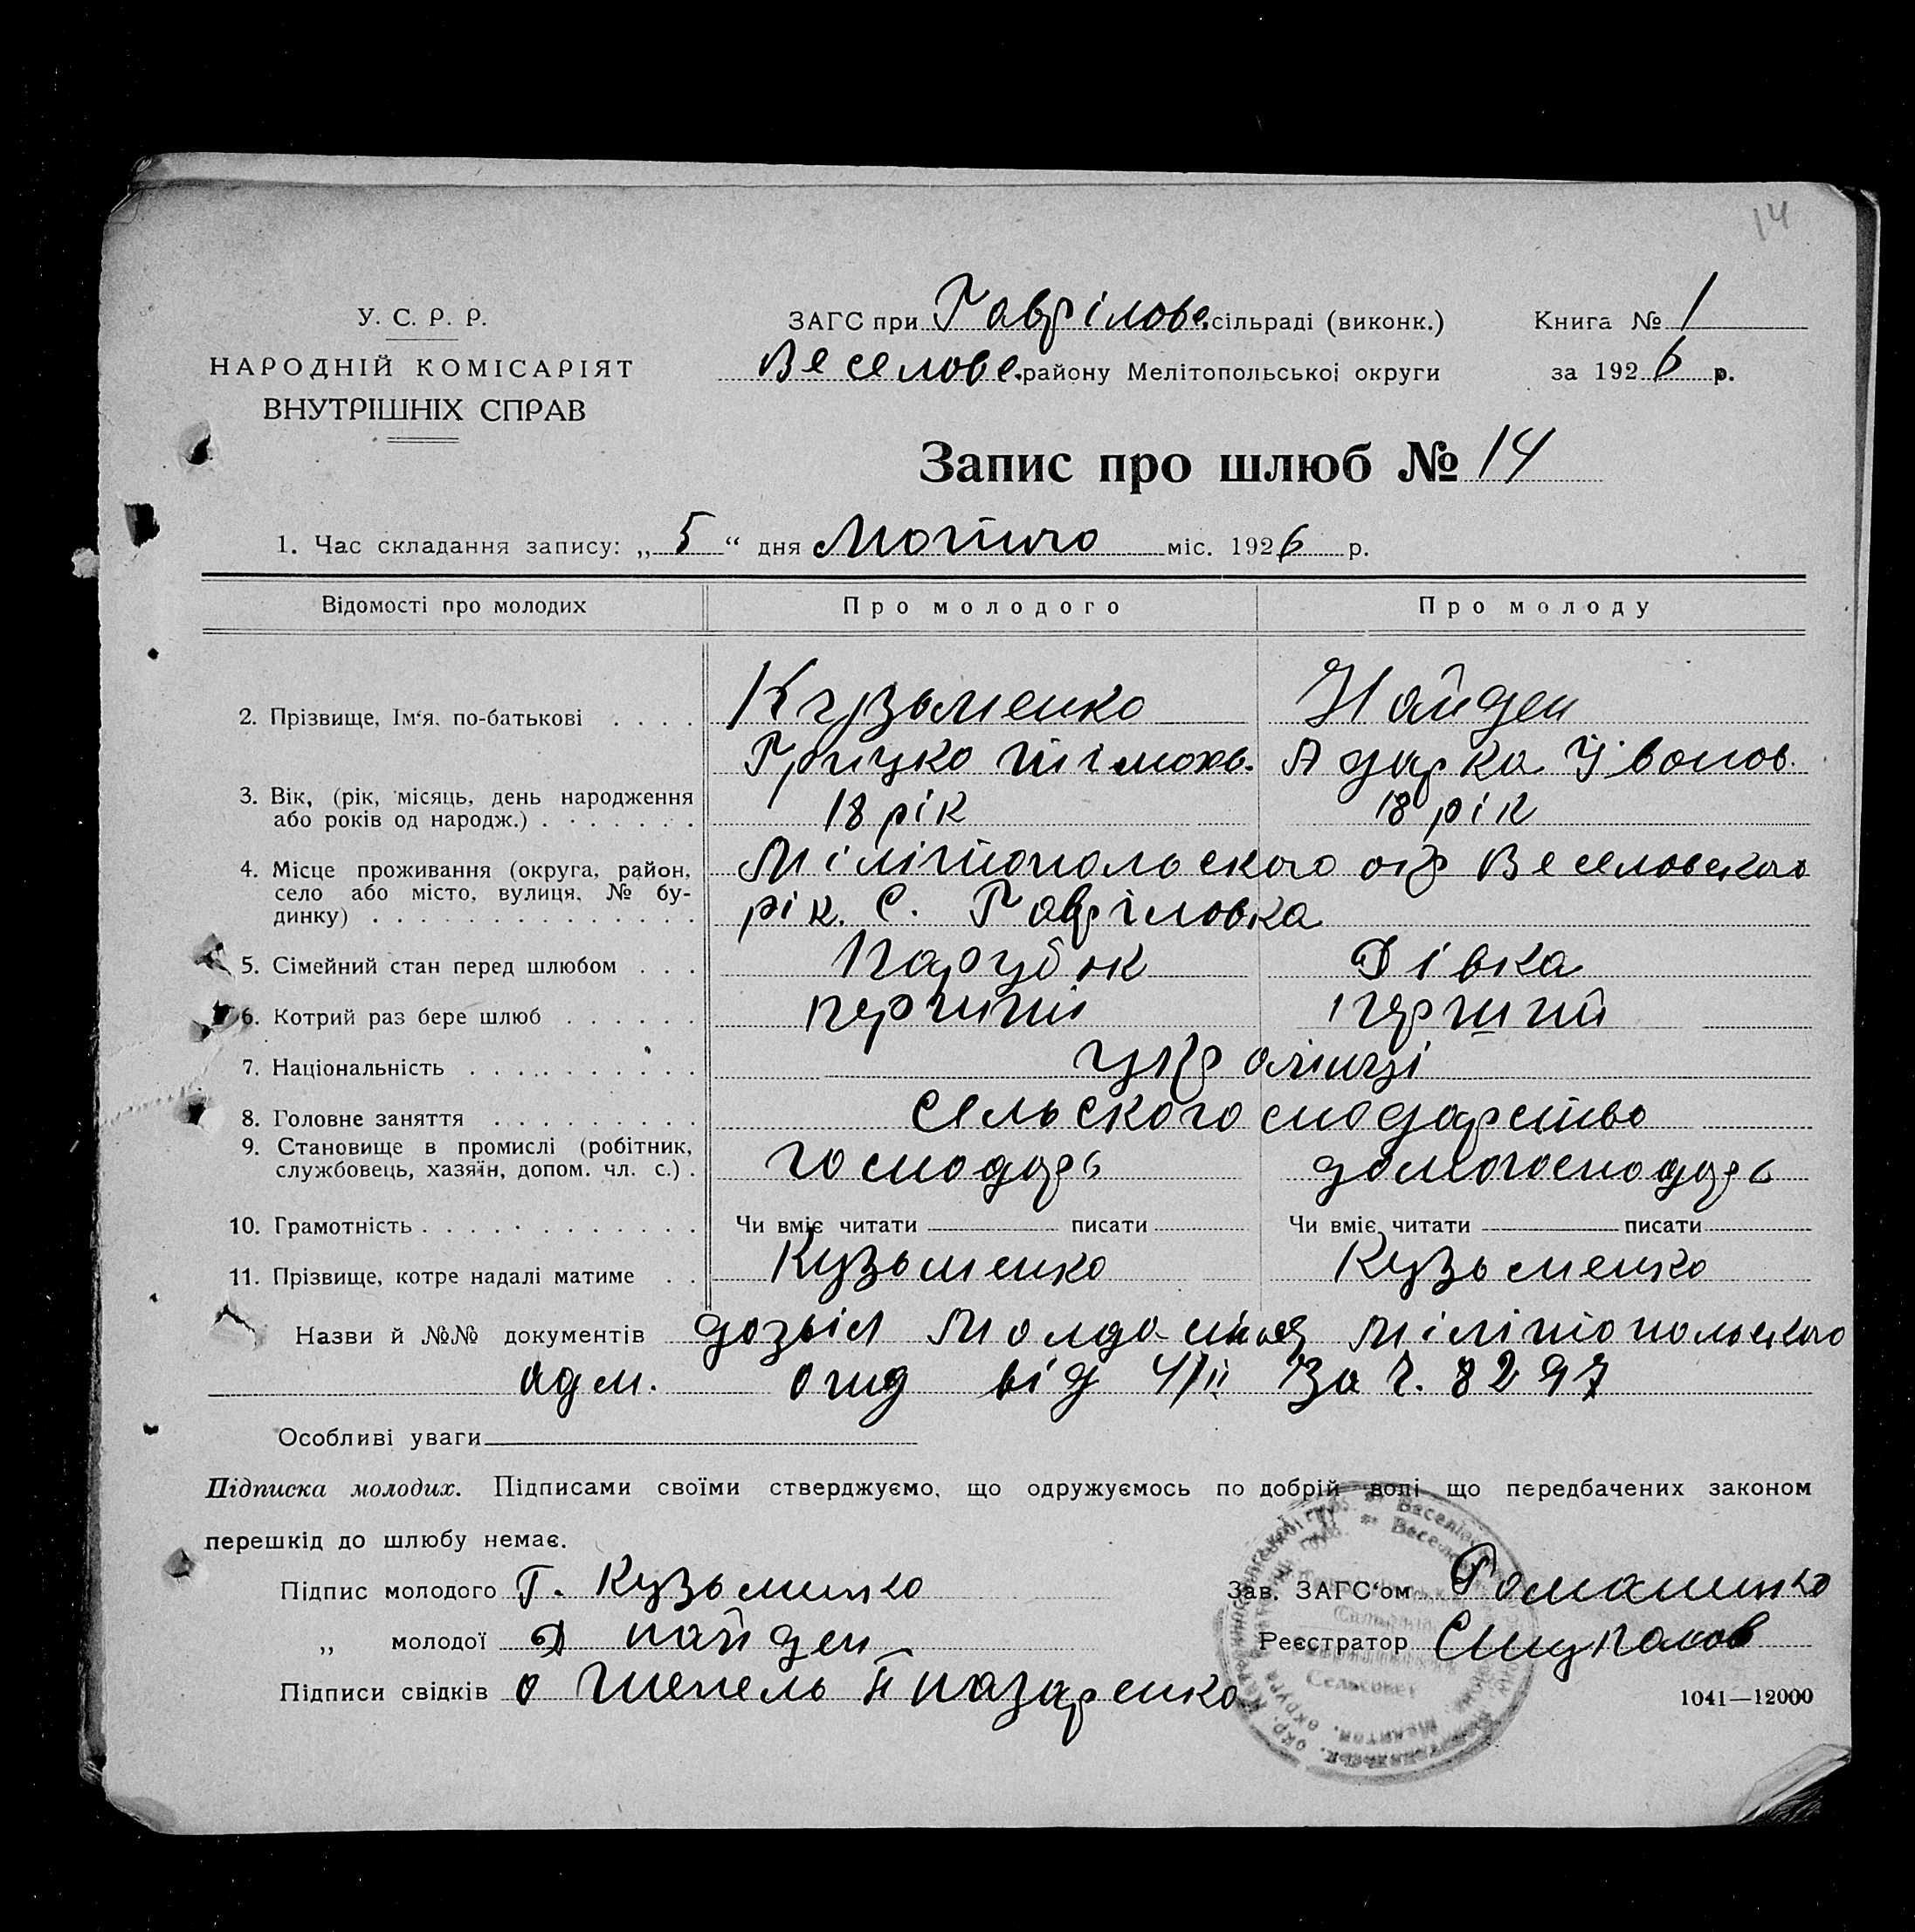 14
У. С. Р. Р.
НАРОДНІЙ КОМІСАРІЯТ
ВНУТРІШНІХ СПРАВ
ЗАГС при Гаврілове. сільраді (виконк.)
Веселове. району Мелітопольської округи
Книга № 1
за 1926 р.
Запис про шлюб № 14
1. Час складання запису: „ 5 “ дня Лютого міс. 1926 р.
Відомості про молодих Про молодого Про молоду
2. Прізвище, Ім‘я, по-батькові . . . . Кузьменко Найден
Грицко Тімохв. Адарка Івонов.
3. Вік, (рік, місяць, день народження
або років од народж.) . . . . . . . 18 рік 18 рік
4. Місце проживання (округа, район, Мілітопольского окр Веселовского
село або місто, вулиця, № бу-
динку) . . . . . . . . . . . . . . рік. С. Гавріловка
5. Сімейний стан перед шлюбом . . . Парубок Дівка
6. Котрий раз бере шлюб . . . . . . перший перший
7. Національність . . . . . . . . . . українці
8. Головне заняття . . . . . . . . . Сельского сподарство
9. Становище в промислі (робітник,
службовець, хазяїн, допом. чл. с.) . господарь домогосподарь
10. Грамотність . . . . . . . . . . . . Чи вміє читати писати Чи вміє читати писати
11. Прізвище, котре надалі матиме . . Кузьменко Кузьменко
Назви й №№ документів дозвіл Мілітопольского
адм. від 4/II За ч. 8297
Особливі уваги
Підписка молодих. Підписами своїми стверджуємо, що одружуємось по добрій волі що передбачених законом
перешкід до шлюбу немає.
Підпис молодого Г. Кузьминко
Зав. ЗАГС‘ом Романинко
„ молодої Д найден
Реєстратор
Підписи свідків О Шепель Й назаренко
Сельсовет
1041—12000